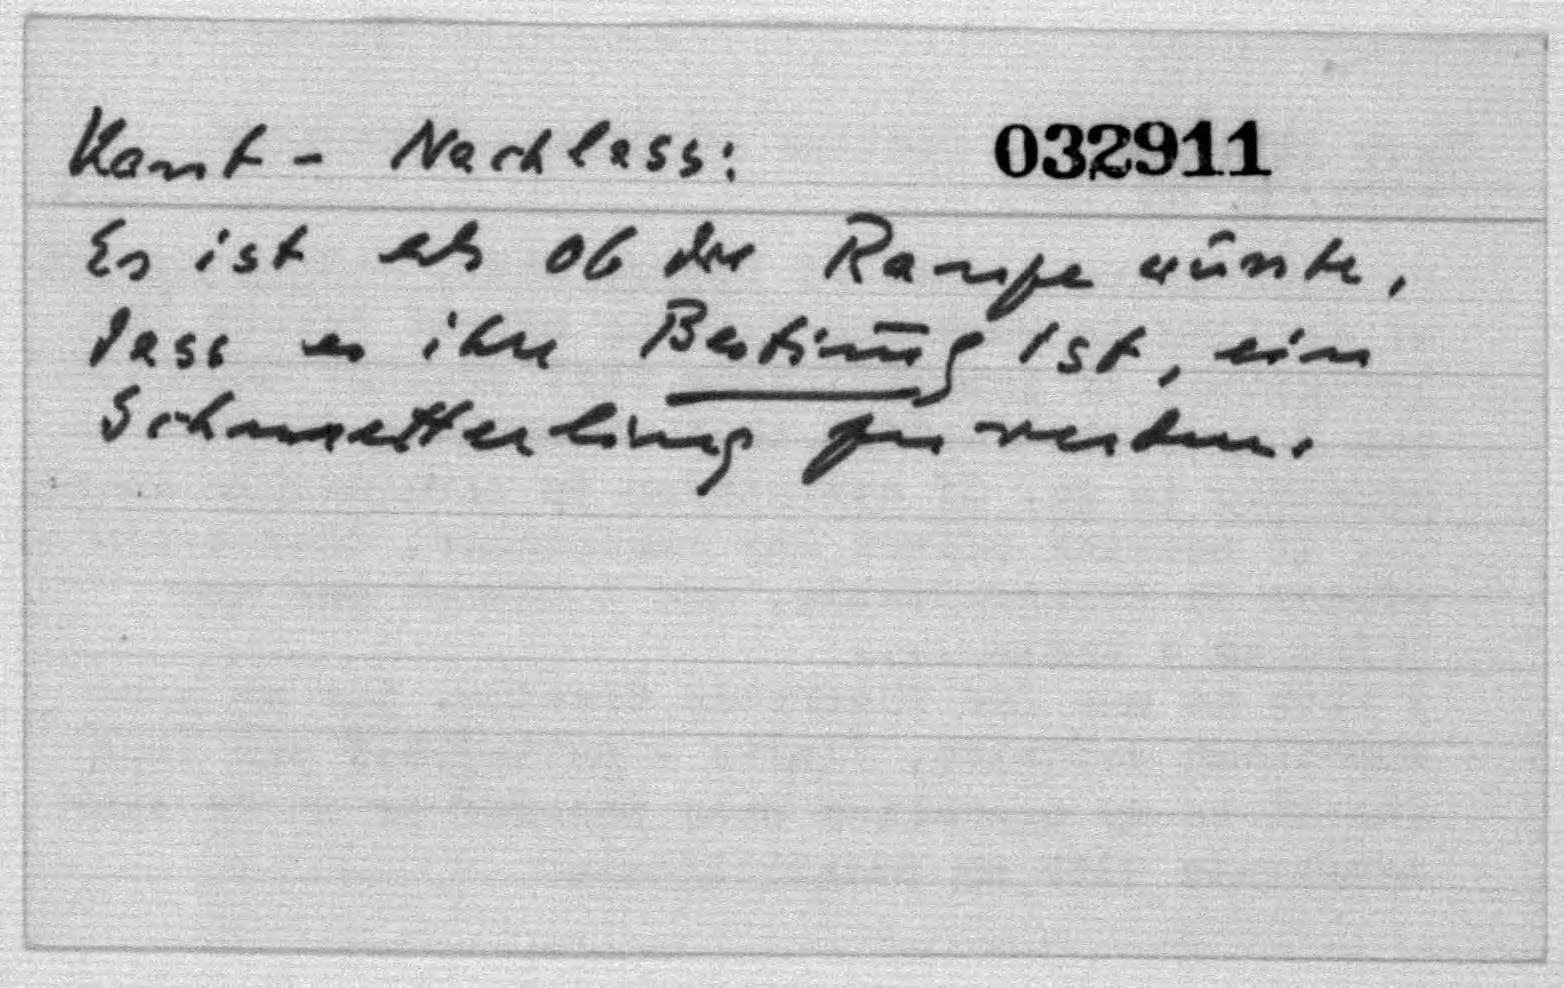 Kant - Nachlass: 032911
Es ist als ob die Raupe wüsste,
dass es ihre Bestim̅g ist, ein
Schmetterling zu werden.